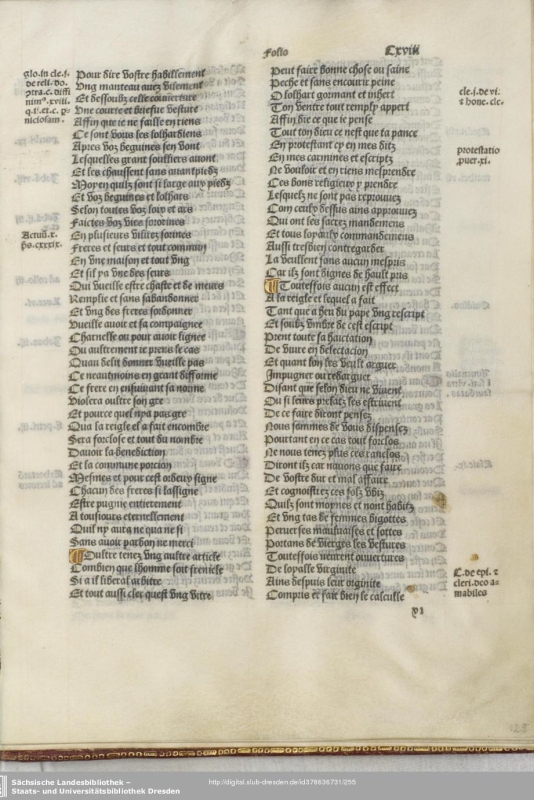 Folio Cxviii
glo. in cle. j.
de reli. do.
Pour dire vostre habillement
Ung manteau avez visement
Et dessoubz celle couverture
Une courte et briefve vesture
Affin que ie ne faille en riens
Ce sont vous les lolhardiens
Apres voz beguines sen vont
Lesquelles grant soulliers auont
Et les chaussent sans auantpiedz
Moyen quilz sont si large aux piedz
Et voz beguines et lolhars
Selon toutes voz loix et ars
Faictes voz vies
En plusieurs villes
Freres et seurs et tout commun
En une maison et tout ung
Et sil ya une des seurs
Qui vueille estre chaste et de meurs
Remplie et sans sabandonner
Et ung des freres sordonner
Vueille auoir et sa compaignee
Charnelle ou pour auoir lignee
Ou aultrement ie prens le cas
Quan delit donner vueille pas
Ce neaulmoins en grant difforme
Ce frere en ensuiuant sa norme
Violera oultre son gre
Et pource quel nya pas gre
Qua la reigle el a fait encombre
Sera forclose et tout du nombre
Dauoir la benediction
Et la commune porcion
Mesmes et pour cest ordeux signe
Chacun des freres si lassigne
Estre pugnie entierement
A tousiours eternellement
Quil ny aura ne qua ne si
Sans auoir pardon ne merci
Oultre tenez ung aultre article
Combien que lhomme soit frenicle
Si a il liberal arbitre
Et tout aussi cler quest ung vitre
Peut faire bonne chose ou saine
Peche et sans encourir peine
O lolhart gormant et inhert
Ton ventre tout remply appert
Affin die ce que ie pense
Tout ton dieu ce nest que ta pance
En protestant cy en mes ditz
En mes carmines et escriptz
Ne vouloir et en riens mesprendre
Ces bons religieux y prendre
Lesquelz ne sont pas reprouuez
Com ceulx dessus ains approuuez
Qui ont les sacrez mandemens
Et tous loyaulx commandemens
Aussi tresbien contregarder
La veullent sans aucun mespris
Car ilz sont dignes de hault pris
Toutesfois aucun est effect
A la reigle et lequel a fait
Tant que a heu du pape ung rescript
Et soubz umbre de cest escript
Prent toute sa
De viure en delectacion
Et quant lon les veult arguer
Impugner ou redarguer
Disant que selon dieu ne viuent
Ou si leurs prelatz les estriuent
De ce faire diront pensez
Nous sommes de vous dispensez
Pourtant en ce cas tout forclos
Ne nous tenez plus ces ranclos
Diront ilz car nauons que faire
De vostre dur et mal affaire
Et cognoistrez ces folz ditz
Quilz sont moynes et nont habitz
Et ung tas de femmes bigottes
Peruerses mauluaises et sottes
Portans de vierges les vestures
Toutesfois veulent ouuertures
De loyalle virginite
Ains despuis leur originite
Compris et fait bien le calculle
cle. j. de vi.
protestatio
C. de epi. z